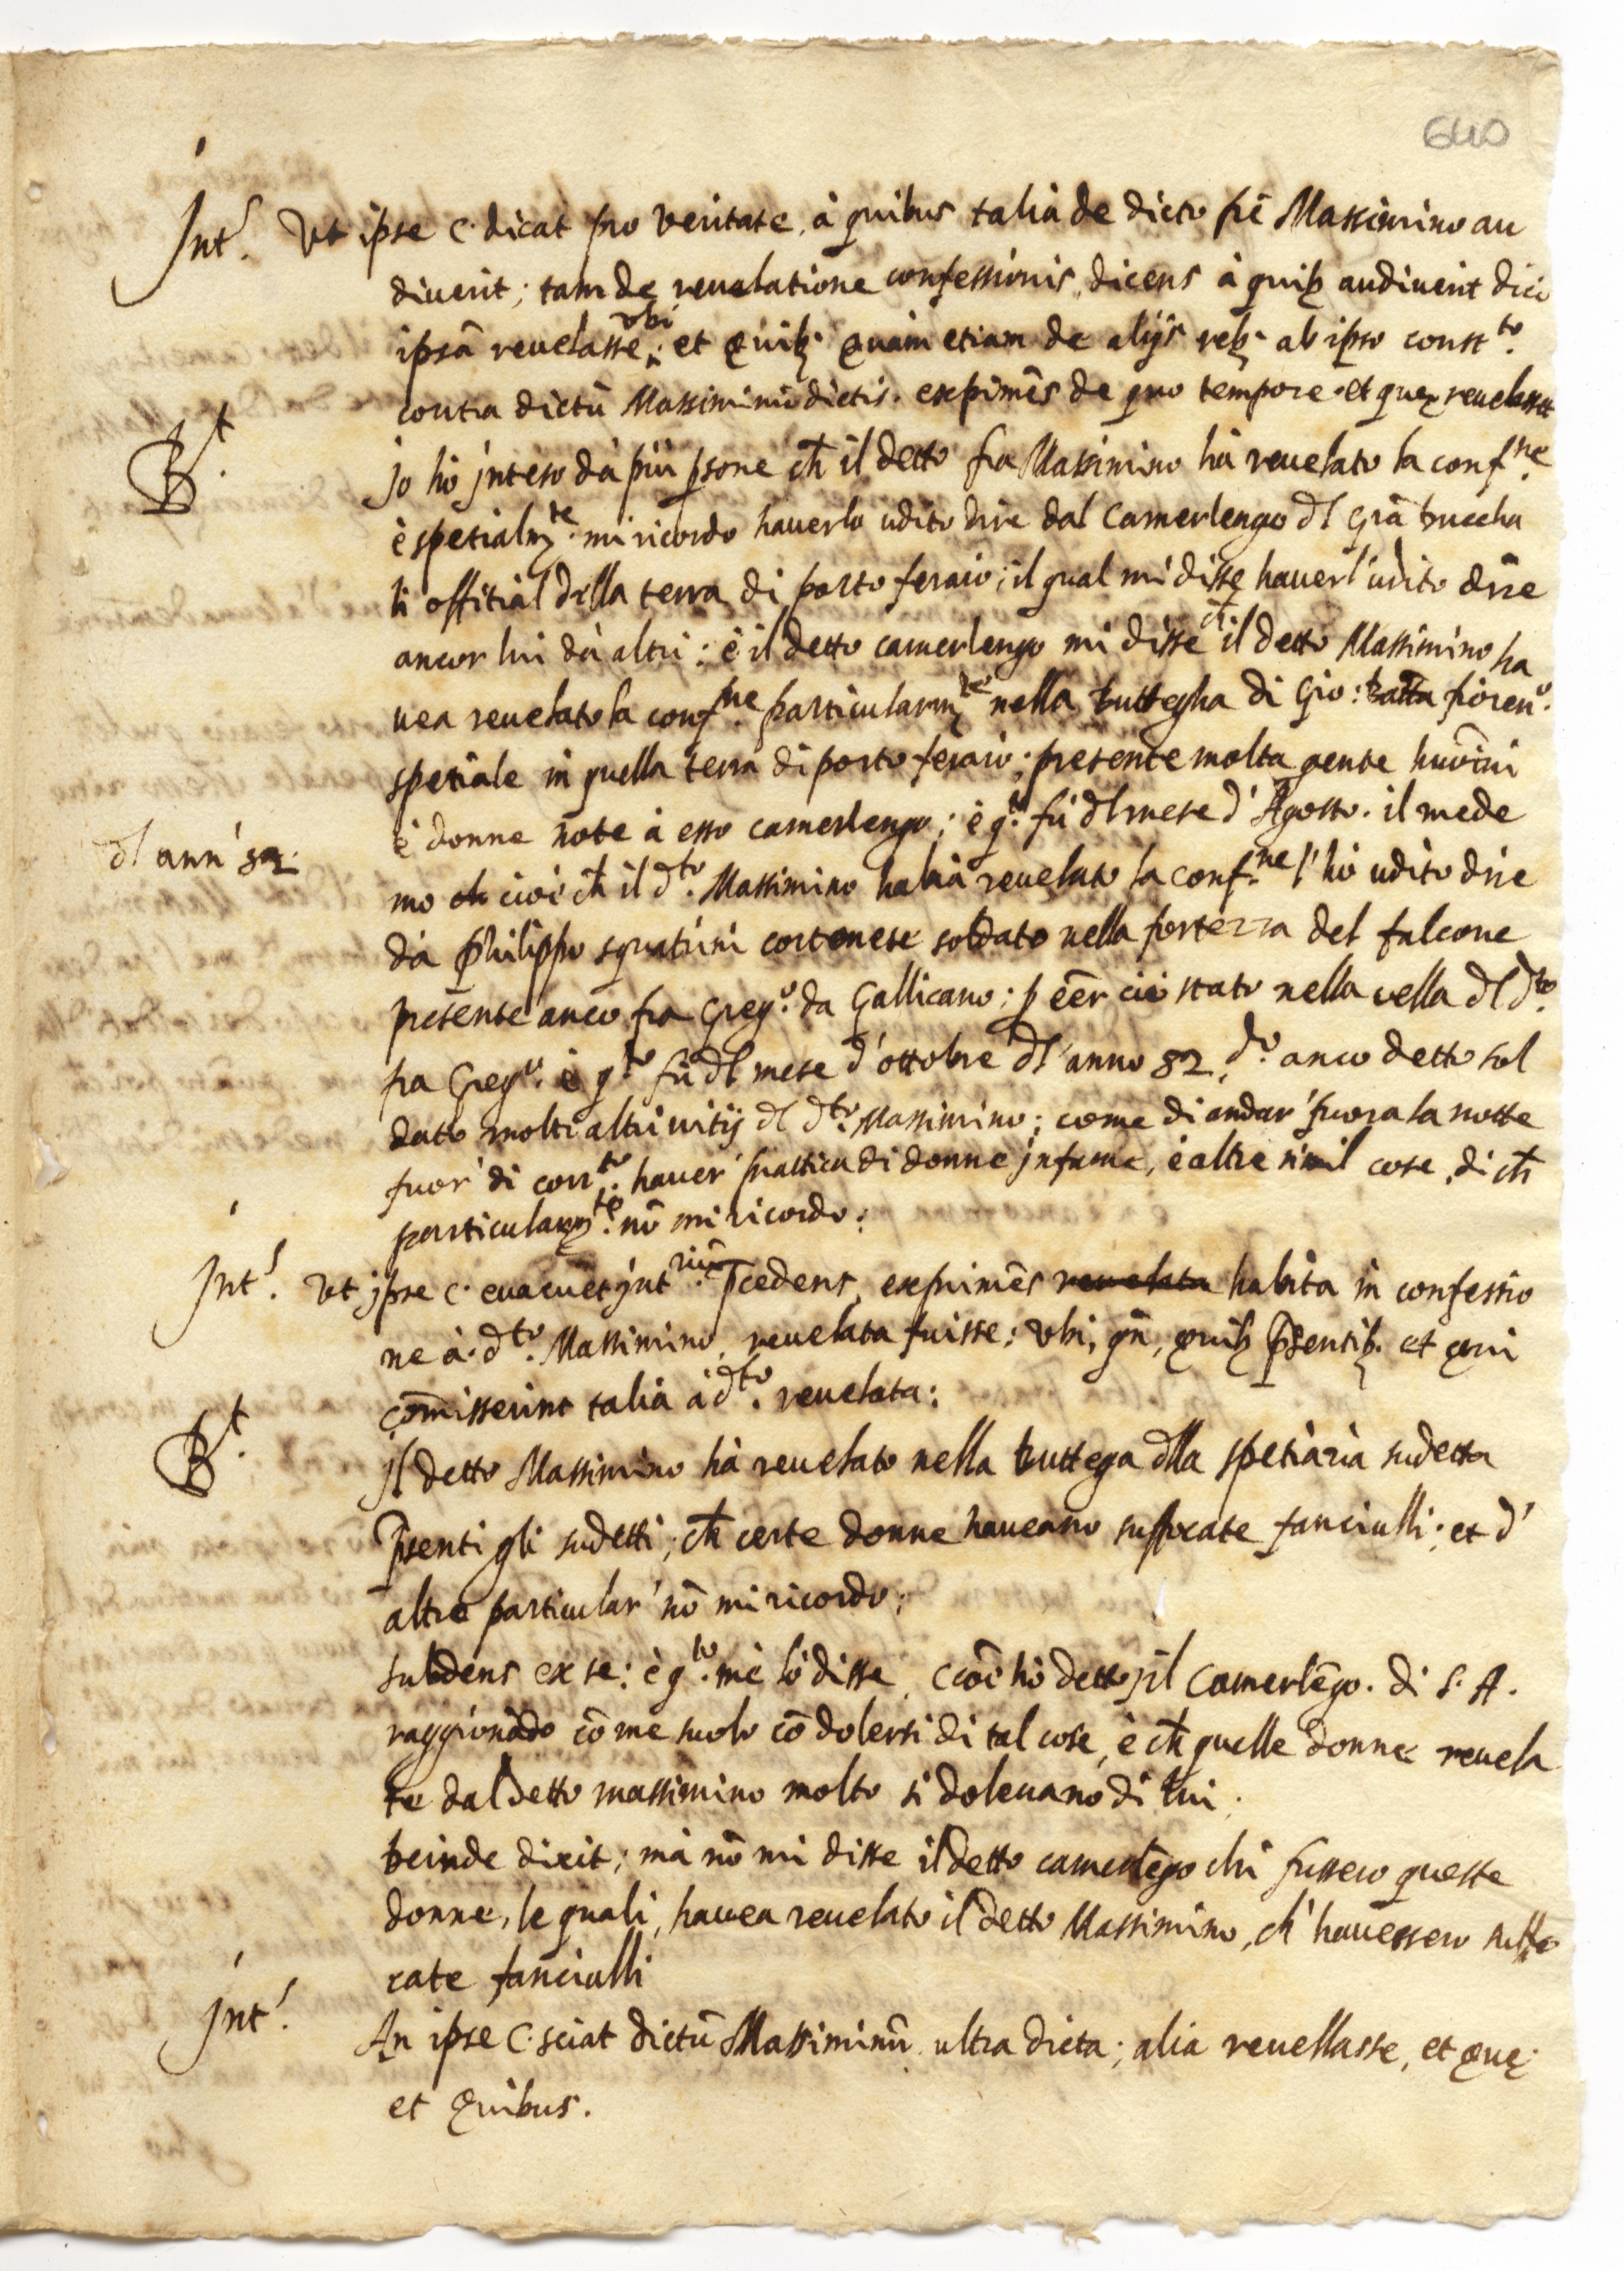 640
Int.s Vt ipse c. dicat pro veritate, à quibus talia de dicto frē Massimino au
diuerit; tam de reuelatione confessionis, dicens à quib; audiuerit dici
ipsā reuelasse; vbi et quib; quam etiam de alijs reb; ab ipso constto.
contra dictū Massiminū dictis. exprimēs de quo tempore et que reuelasset
Rt. Jo hò inteso dà più psone ch il detto fra Massimino hà reuelato la confne.
è spetialmte. mi ricordo hauerlo udito dire dal Camerlengo dl Grā Duccha
li offitial della terra di porto feraio; il qual mi disse hauerl'udito dire
ancor lui dà altri: è il detto camerlengo mi disse ch il detto Massimino ha
uea reuelato la confne. particularmte nella buttegha di Gio: batta fioreno.
spetiale in quella terra di porto feraio; presente molta gente huōini
è donne note à esso camerlengo; è qto. fù dl mese d'Agosto. il mede
dl ann' 82.
mo ch cioè ch il dto. Massimino habia reuelato la confne. l'hò udito dire
dà Philippo squatrini cortonese soldato nella fortezza del falcone
presente anco fra Grego. da Gallicano; p eēr ciò stato nella cella dl dto.
fra Grego. è qto. fù dl mese d'ottobre dl anno 82. do. anco detto sol
dato molti altri uitij dl dto. Massimino; come di andar' fuora la notte
fuor' di conto. hauer' prattica di donne infame, è altre simil cose, di ch
particularmte. nō mi ricordo:
Int.s Vt ipse c. euacuet intriū. pcedens, exprimēs reuelata habita in confessio
ne à dto. Massimino, reuelata fuisse: vbi, qn̄, quib; pn̄sentib; et qui
com̄isserint talia à dto. reuelata:
Rt. Il detto Massimino hà reuelato nella buttega dlla spetiaria sudetta
pn̄senti gli sudetti; ch certe donne haueano suffocate fanciulli; et d'
altre particular' nō mi ricordo;
subdens ex se: è qto. mè lò disse, c̄oē hò detto, il Camerlēgo. di S. A.
raggionādo cō me suolo cō dolersi di tal cose, è ch quelle donne reuela
te dal detto massimino molto si doleuano di lui.
deinde dixit; mà nō mi disse il detto camerlēgo chi fussero queste
donne, le quali, hauea reuelato il detto Massimino, ch' hauessero suffo
cate fanciulli
Int.s An ipse c. sciat dictū Massiminū ultra dicta; alia reuellasse, et que
et quibus.